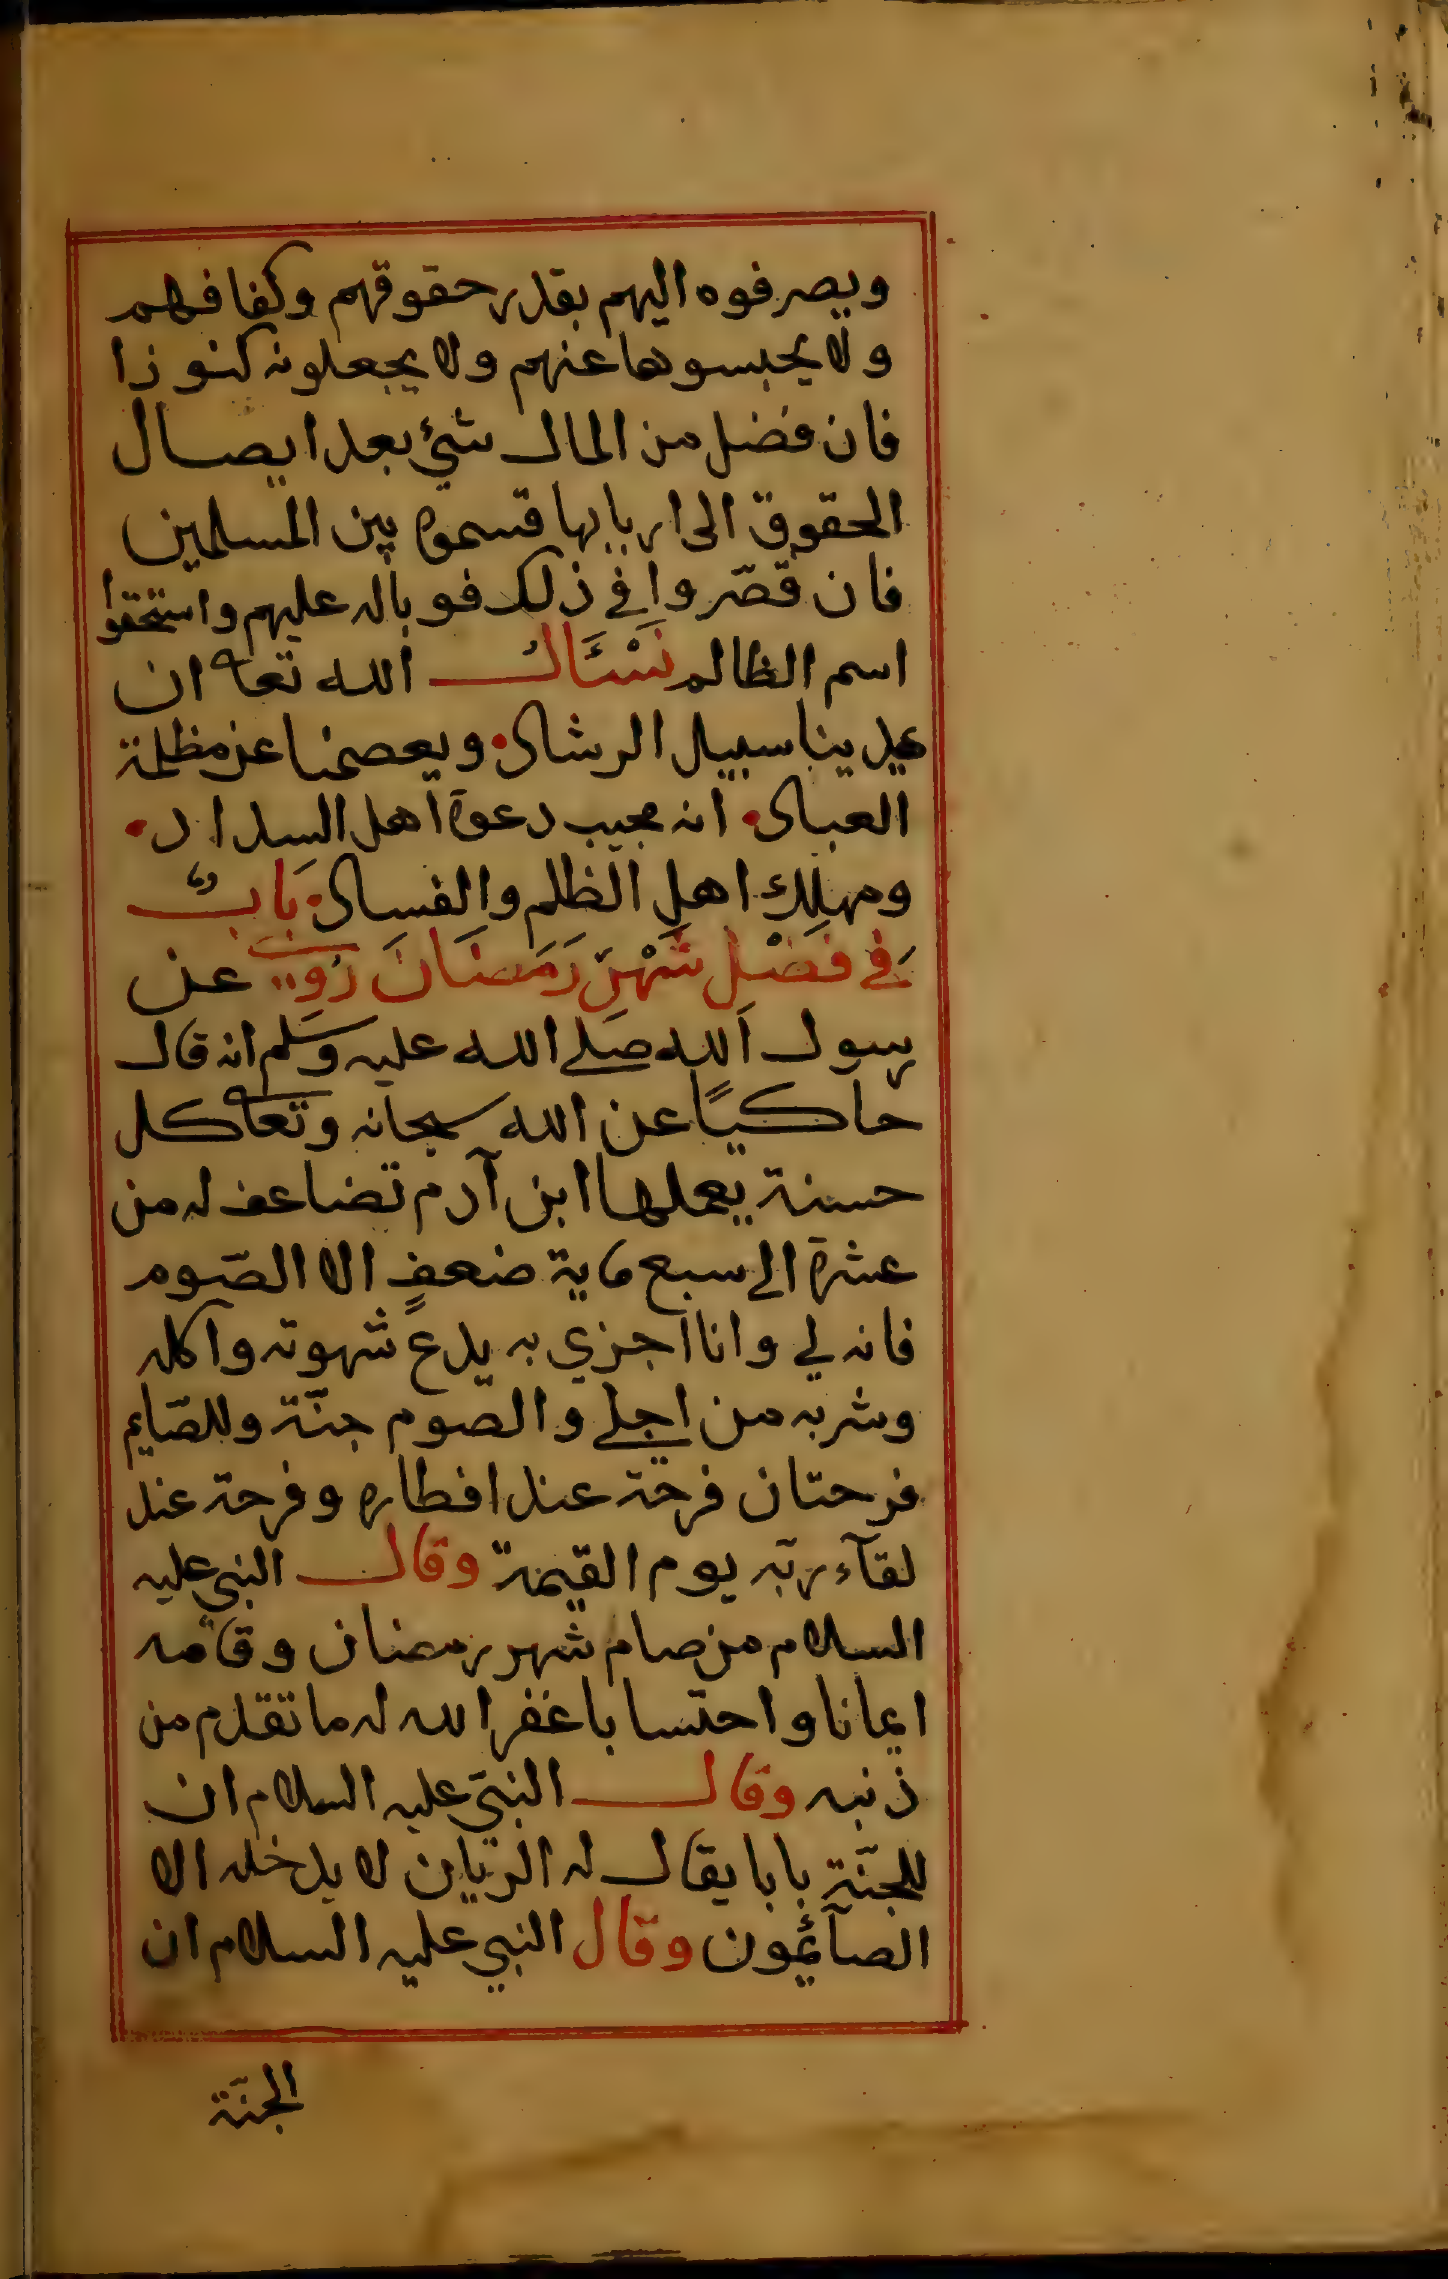 ويصرفوه اليهم بقدر حقوقهم وكفافهم
ولا يحبسوها عنهم ولا يجعلونه كنوزا
فان فضل من المال شئ بعد ايصال
الحقوق الى اربابها قسموه بين المسلمين
فان قصّروا في ذلك فوباله عليهم واستحقوا
اسم الظالم نَسْئَالُ الله تعا ان
يهدينا سبيل الرشاد ويعصمنا عن مظلمة
العباد انه مجيب دعوة اهل السداد
ومهلك اهل الظلم والفساد بَابٌ
فِي فَضْلِ شَهْرِ رَمَضَانَ رُوي عن
رسول الله صلى الله عليه وسلم انه قال
حاكيًا عن الله سبحانه وتعا كل
حسنة يعملها ابن آدم تضاعف له من
عشرة الى سبع ماية ضعفٍ الا الصّوم
فانه لي وانا اجزي به يدع شهوته واكله
وشربه من اجلي والصوم جنّة وللصّايم
فرحتان فرحة عند افطاره وفرحة عند
لقآء ربّه يوم القيمة وقال النبي عليه
السلام من صام شهر رمضان وقامه
ايمانا واحتسابا غفر الله له ما تقدم من
ذنبه وقال النبيّ عليه السلام ان
للجنّة بابا يقال له الريّان لا يدخله الا
الصآئمون وقال النبي عليه السلام ان
الجنّة